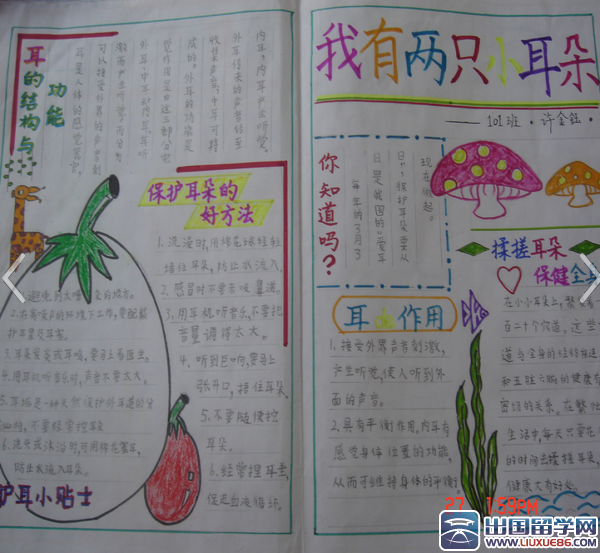 我有两只小耳朵
101班·许金钰·
你知道吗?
每年的3月3
日是我国的“爱耳
日”,保护耳朵要从
现在做起。
揉搓耳朵
保健全
耳 作用
1.接受外界声音刺激,
产生听觉,使人听到外
面的声音。
2.具有平衡作用,内耳有
感觉身体位置的功能,
从而可维持身体的平衡
在小小耳朵上,
百二十个穴道,这些
道与全身的经络
和五脏六腑的健康有
密切的关系。在繁忙
生活中,每天只要花
的时间去揉搓耳朵,
健康大有好处。
耳的结构与
功能
耳是人体的感觉器官,
可以接受外界的声音刺
激而产生听觉,
外耳、中耳和内耳,耳听
觉作用是由这三部分完
成的。外耳的功能是
收集声音,中耳可将
外耳传来的声音传至
内耳,内耳产生听觉。
保护耳朵的
好方法
1.洗澡时,用棉花球轻轻
塞住耳朵,防止水流入。
2.感冒时不要乱吸鼻涕。
3.用耳机听音乐,不要把
音量调得太大。
4.听到巨响,要马上
张开口,捂住耳朵。
5.不要随便挖
耳朵。
6.经常捏耳垂,
促进血液循环。
避免到太嘈
2.在高噪声的环境下工作,要配戴
护耳罩及耳塞。
3.耳朵发炎或耳鸣,要马上看医生。
4.用耳机听音乐时,声音不要太大。
5.耳垢是一种天然保护外耳道的分
泌物,不要经常挖
6.洗头或沐浴时,可用棉花塞耳,
防止水流入耳朵。
护耳小贴士
27 1:59PM
出国留学网
WWW.LIUXUE86.COM